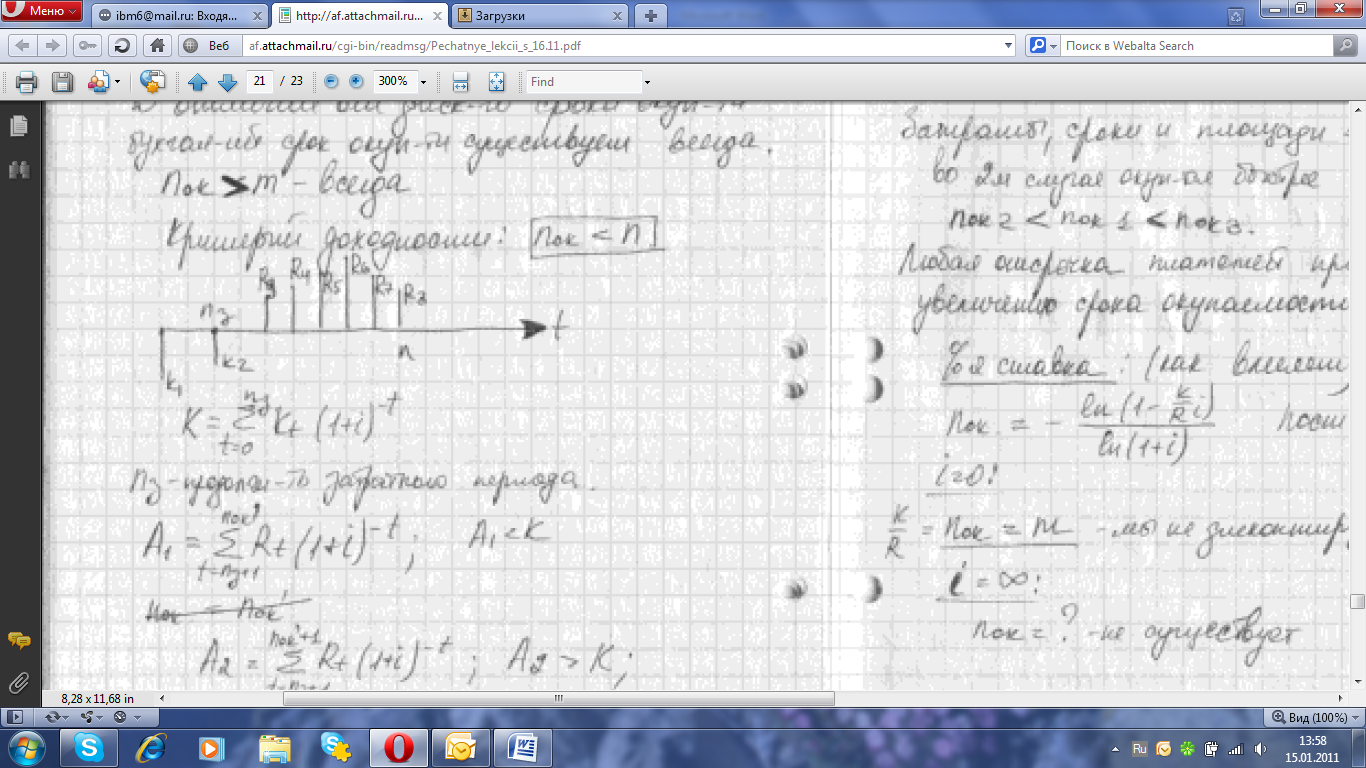 Меню
ibm6@mail.ru: Входя...
http://af.attachmail.ru...
Загрузки
Веб
af.attachmail.ru/cgi-bin/readmsg/Pechatnye_lekcii_s_16.11.pdf
Поиск в Webalta Search
21 / 23
300%
Find
срок окуп-ти существует всегда.
nок > m - всегда
Критерий доходности: nок < n
R3 R4 R5 R6 R7
nз
t
K1
K2
n
K = ∑ Kt (1+i)^-t
t=0
nз - затратного периода.
A1 = ∑ Rt (1+i)^-t ; A1 < K
t=nз+1
nок'
nок = nок'
nок'+1
A2 = ∑ Rt (1+i)^-t ; A2 > K;
Затраты, сроки и площади
во 2м случае окуп-ся быстрее
nок2 < nок1 < nок3.
Любая отсрочка платежей
увеличению срока окупаемости
%я ставка : (как влияет
nок = - ln(1- K/R i) / ln(1+i)
i=0:
K/R = nок = m - мы не
i = ∞:
nок = ? - не существует
8,28 x 11,68 in
Вид (100%)
Ru
13:58
15.01.2011